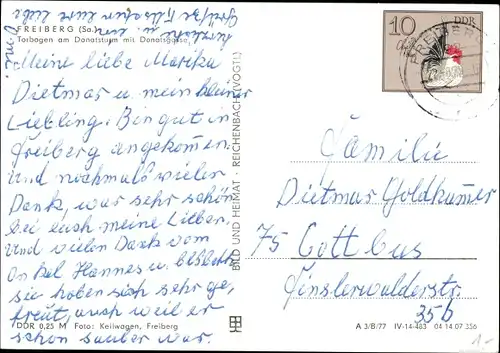 FREIBERG (Sa.)
Torbogen am Donatsturm mit Donatsgasse
Meine liebe Marika
Dietmar u. mein kleiner
Liebling. Bin gut in
Freiberg angekommen.
Und nochmals vielen
Dank, war sehr schön
bei euch meine Lieben.
Und vielen Dank vom
Onkel Hannes u.
sie haben sich sehr ge-
freut, auch weil er
schon sauber war.
Oma.
DDR 0,25 M Foto: Keilwagen, Freiberg
BILD UND HEIMAT · REICHENBACH (VOGTL)
10
DDR
FREIBERG
Familie
Dietmar Goldkamer
75 Cottbus
Finsterwalderstr.
35b
A 3/B/77 IV-14-483 04 14 07 356
1.-